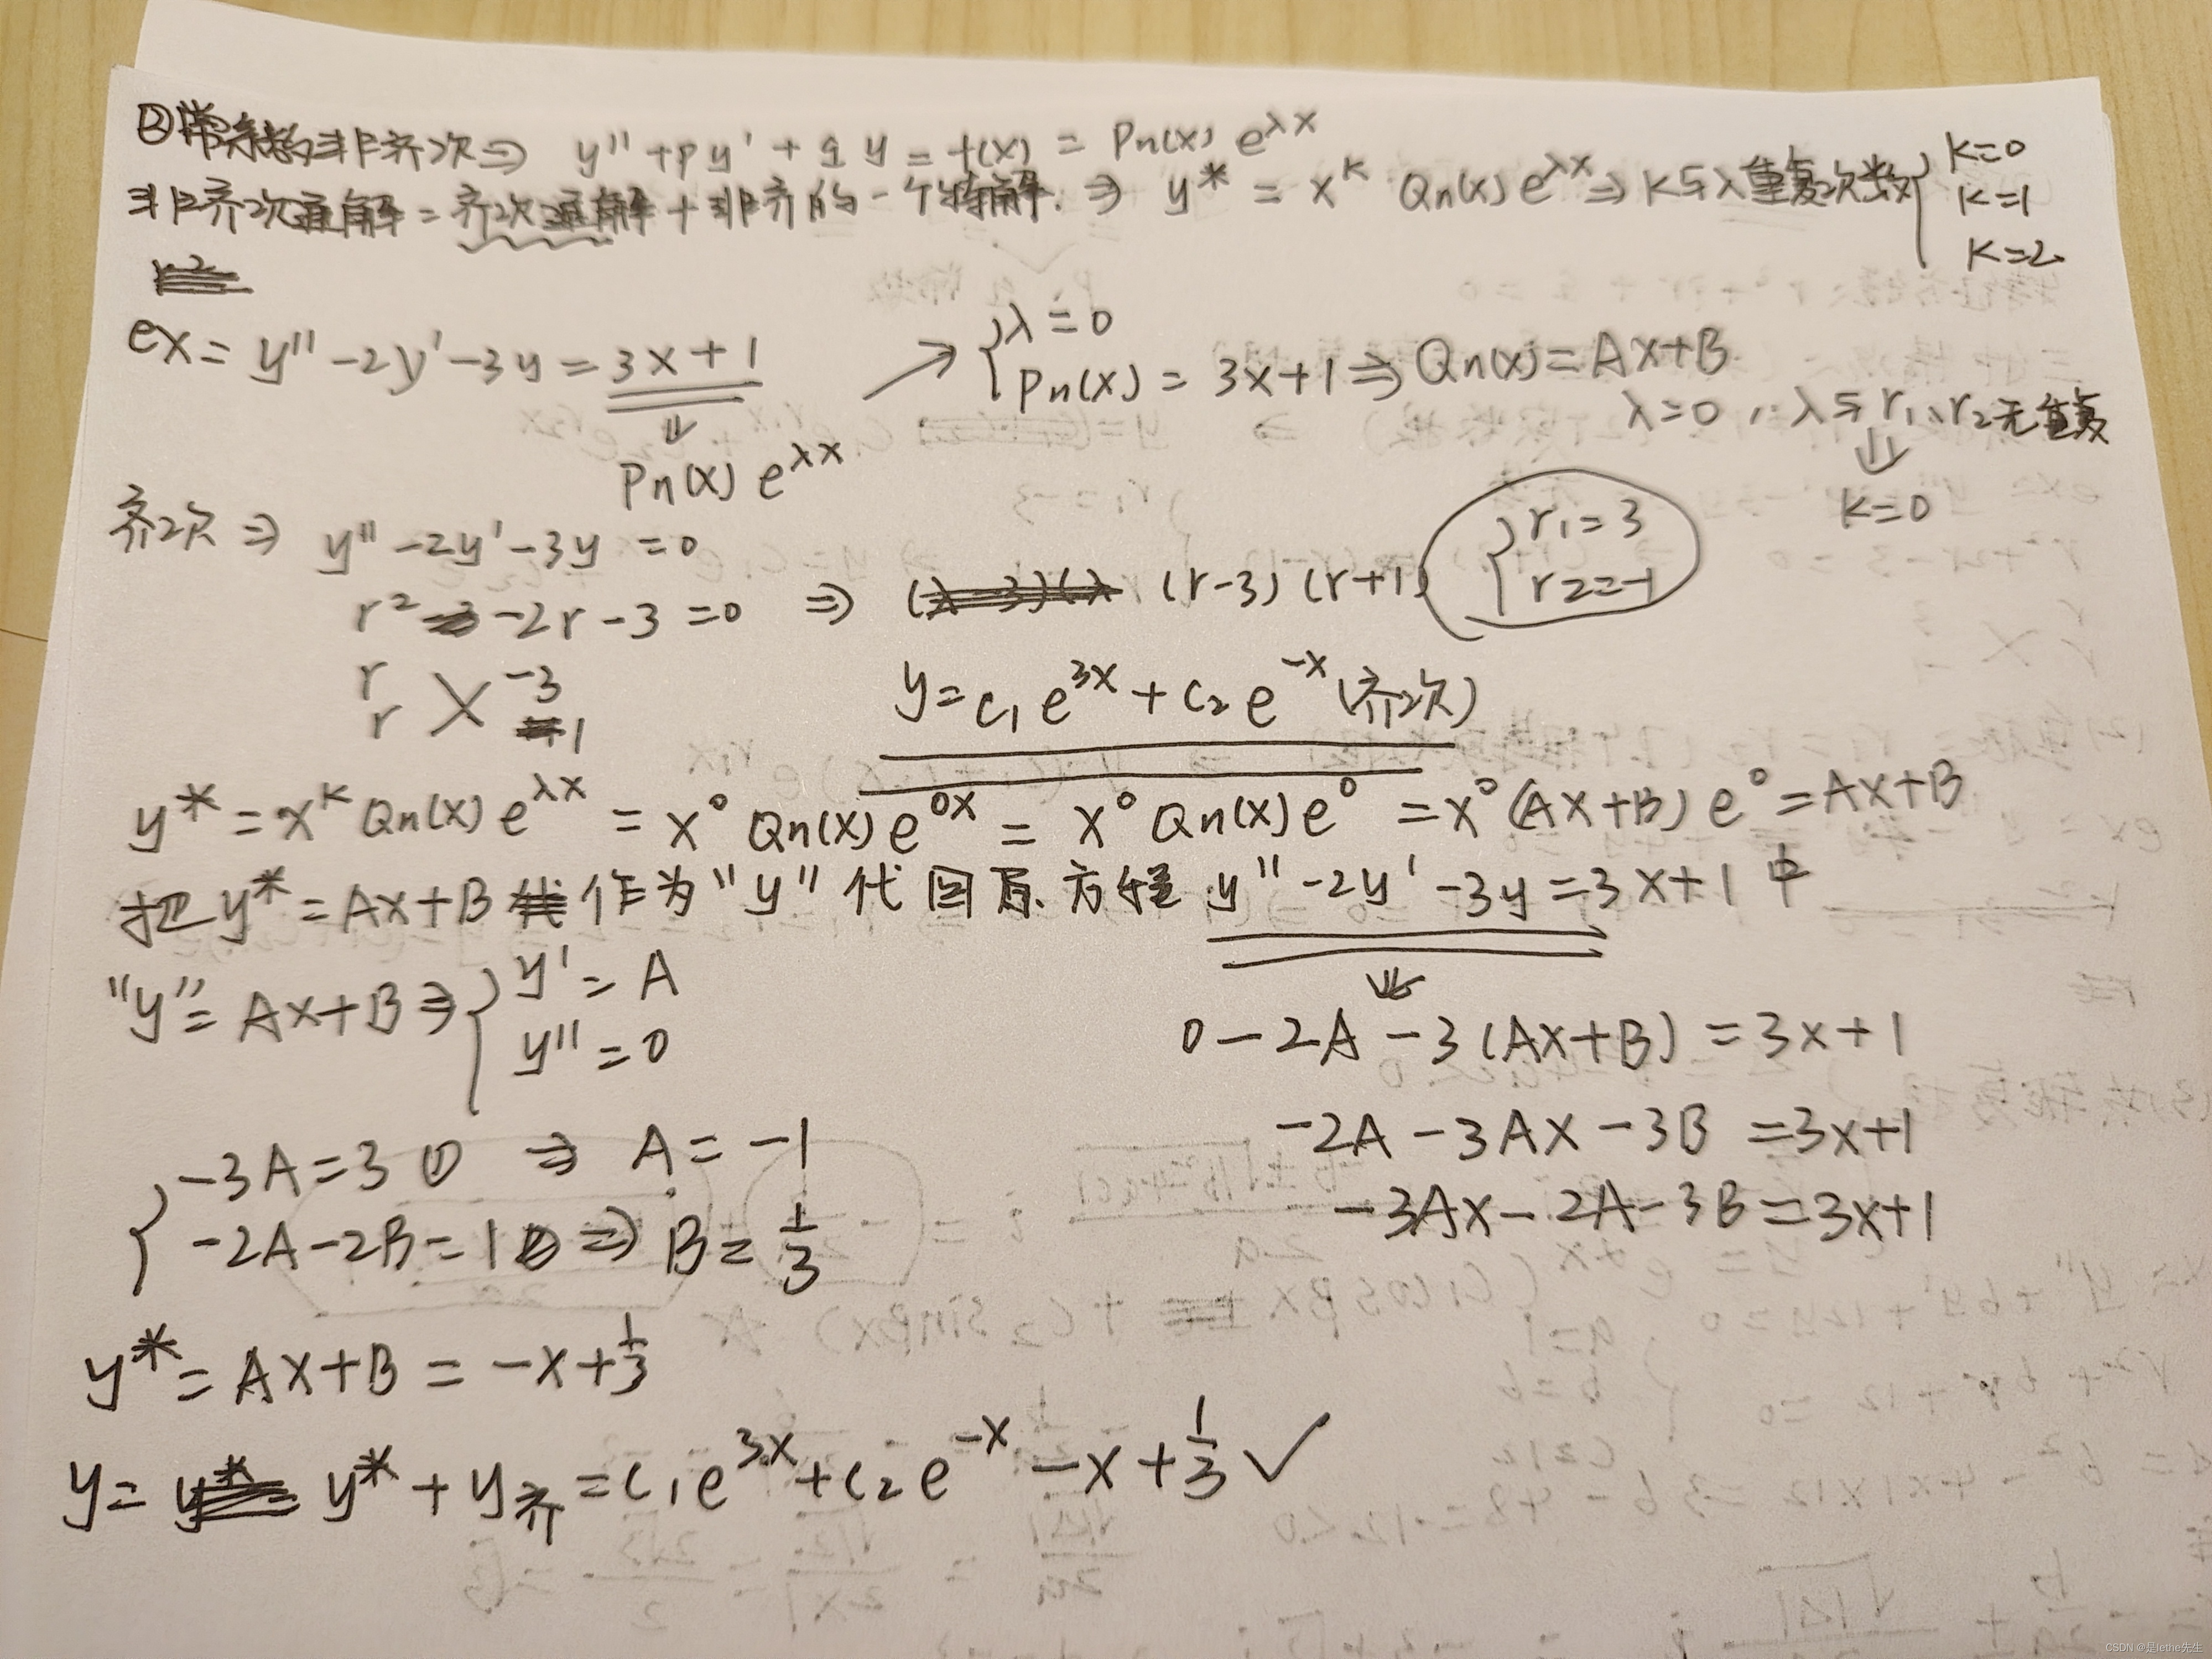 ②常系数非齐次⇒ y''+py'+qy=f(x) = Pn(x) e^{λx}
非齐次通解=齐次通解+非齐的一个特解. ⇒ y* = x^k Qn(x) e^{λx} ⇒ k与λ重复次数{ k=0
k=1
k=2
ex= y''-2y'-3y=3x+1 ↗ { λ=0
Pn(x) = 3x+1 ⇒ Qn(x)=Ax+B
⇓
λ=0, ∴λ与r₁、r₂无重复
Pn(x) e^{λx}
⇓
k=0
齐次 ⇒ y''-2y'-3y=0
r²-2r-3=0 ⇒ (r-3)(r+1) { r₁=3
r2=-1
r ╳ -3
r 1
y=c₁e^{3x}+c₂e^{-x} (齐次)
y*=x^k Qn(x) e^{λx} = x⁰ Qn(x) e^{0x} = x⁰ Qn(x) e⁰ =x⁰(Ax+B) e⁰=Ax+B
把y*=Ax+B作为"y"代回原方程 y''-2y'-3y=3x+1中
⇓
"y"=Ax+B⇒{ y'=A
y''=0
0-2A-3(Ax+B)=3x+1
-2A-3Ax-3B=3x+1
-3Ax-2A-3B=3x+1
{ -3A=3 ① ⇒ A=-1
-2A-2B=1 ② ⇒ B=1/3
y*=Ax+B=-x+1/3
y= y*+y齐=c₁e^{3x}+c₂e^{-x}-x+1/3 ✓
CSDN @是lethe先生